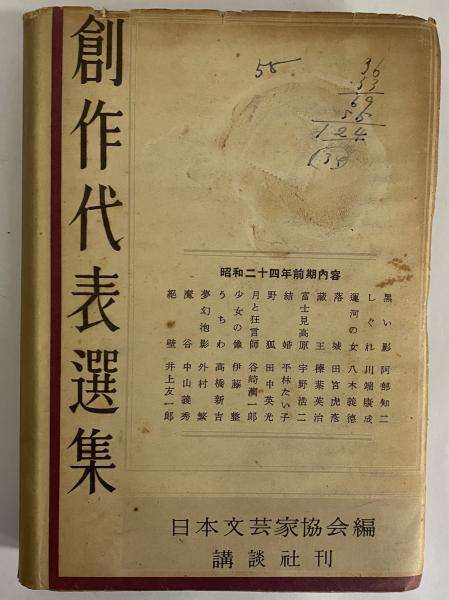 創作代表選集
58
36
53
69
55
124
昭和二十四年前期内容
黒い影 阿部知二
しぐれ 川端康成
運河の女 八木義徳
落城 田宮虎彦
蔵王 榛葉英治
富士見高原 宇野浩二
結婚 平林たい子
野狐 田中英光
月と狂言師 谷崎潤一郎
少女の像 伊藤整
うちわ 高橋新吉
夢幻泡影 外村繁
魔谷 中山義秀
絶壁 井上友一郎
日本文芸家協会編
講談社刊